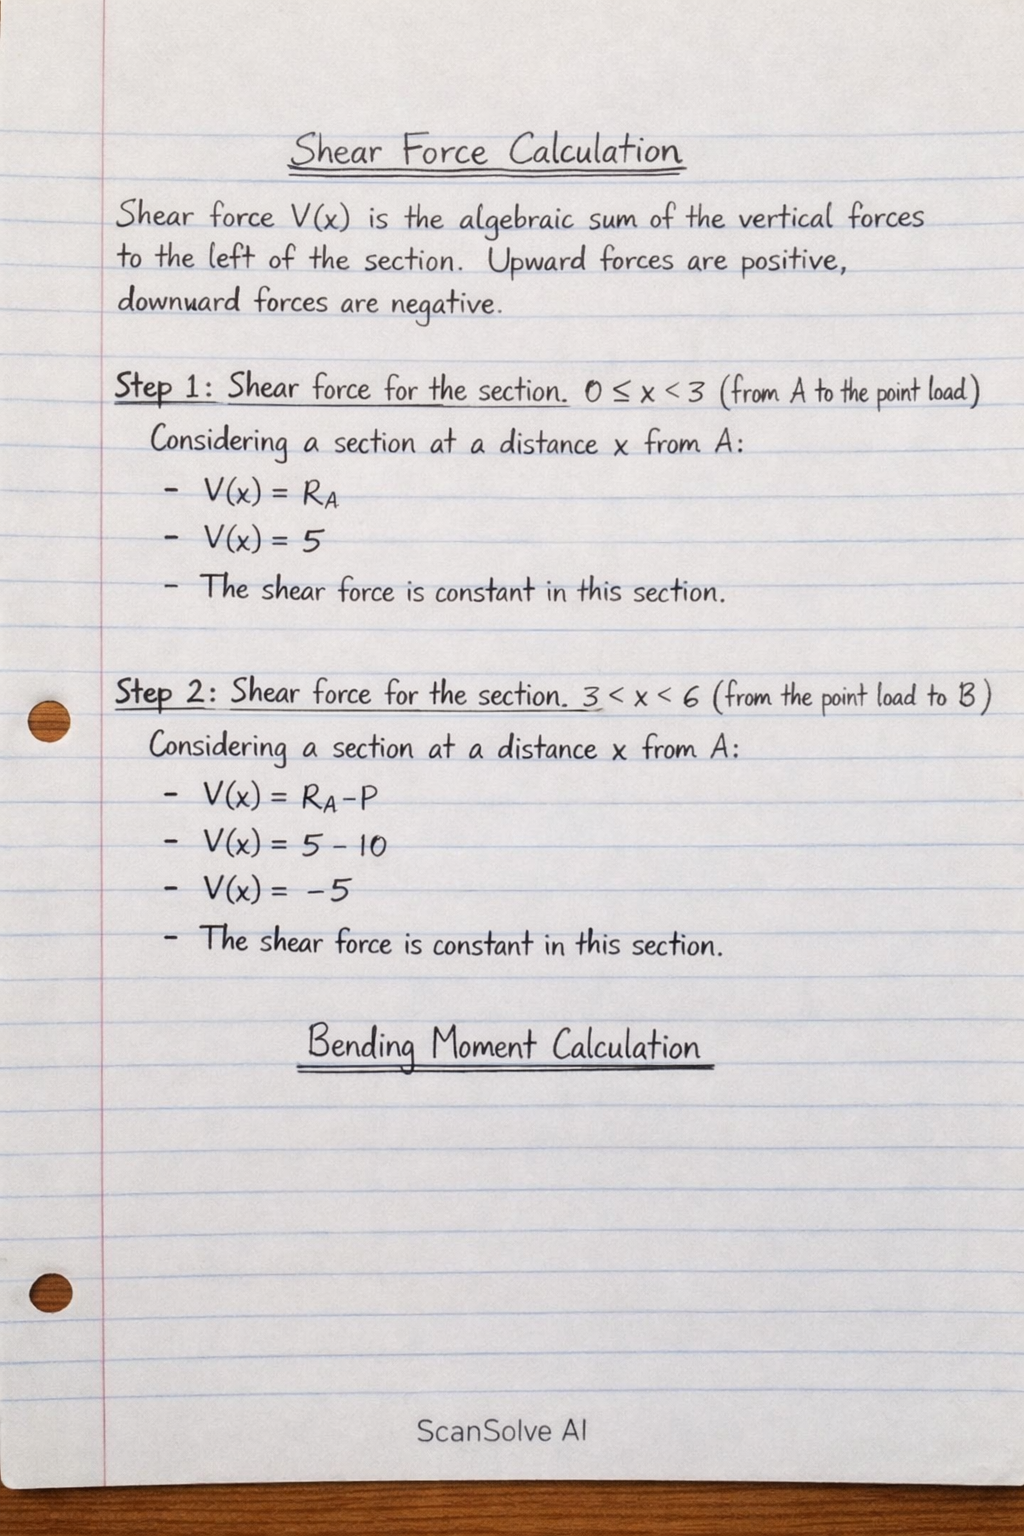 Shear Force Calculation
Shear force V(x) is the algebraic sum of the vertical forces
to the left of the section. Upward forces are positive,
downward forces are negative.
Step 1: Shear force for the section. 0 ≤ x < 3 (from A to the point load)
Considering a section at a distance x from A:
- V(x) = R_A
- V(x) = 5
- The shear force is constant in this section.
Step 2: Shear force for the section. 3 < x < 6 (from the point load to B)
Considering a section at a distance x from A:
- V(x) = R_A - P
- V(x) = 5 - 10
- V(x) = -5
- The shear force is constant in this section.
Bending Moment Calculation
ScanSolve AI